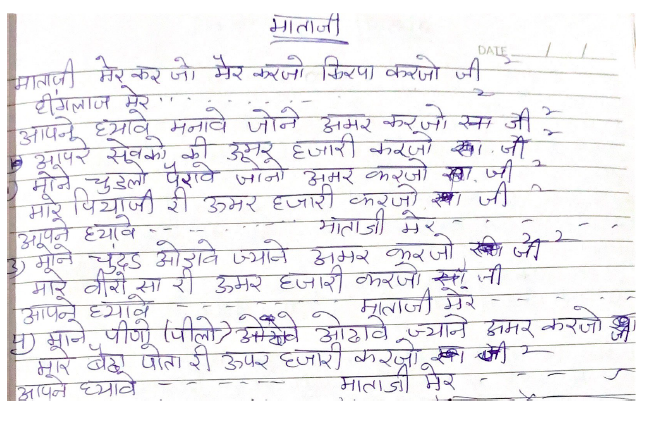 माताजी
DATE / /
माताजी मेर कर जो मैर करजो किरपा करजो जी २
हींगलाज मेर '' - - - - - २
आपने ध्यावे मनावे जोने अमर करजो सा जी २
आपरे सेवको की उमर हजारी करजो सा. जी २
मोने चुडलो पैरावे जाने अमर करजो सा. जी २
मारे पियाजी री ऊमर हजारी करजो सा जी २
आपने ध्यावे - - - - - माताजी मेर - - - -
3) मोने चुंदड ओडावे ज्याने अमर करजो जी २
मारे वीरो सा री ऊमर हजारी करजो सा जी
आपने ध्यावे - - - - - माताजी मेर - - - -
४) मोने पीलो (पीलो) ओढावे ज्याने अमर करजो सा जी
मारे पोता री ऊपर हजारी करजो सा जी २
आपने ध्यावे - - - - - माताजी मेर - - - -